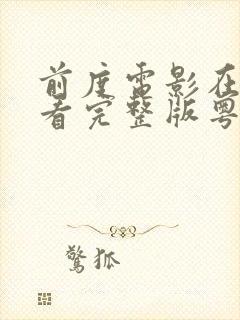 前度電影在
看完整版粵
驚狐